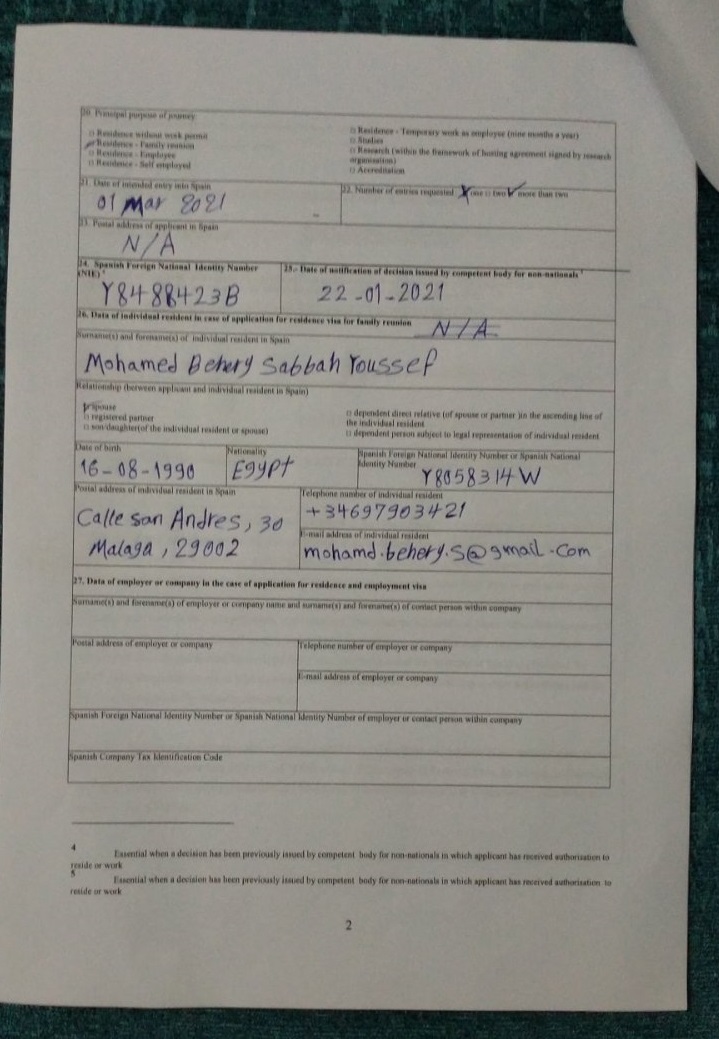 20. Principal purpose of journey
□ Residence without work permit
□ Residence - Family reunion
□ Residence - Employee
□ Residence - Self employed
□ Residence - Temporary work as employee (nine months a year)
□ Studies
□ Research (within the framework of hosting agreement signed by research
organisation)
□ Accreditation
21. Date of intended entry into Spain
01 Mar 2021
22. Number of entries requested □ one □ two □ more than two
23. Postal address of applicant in Spain
N/A
24. Spanish Foreign National Identity Number
(NIE) 4
Y8488423B
25.- Date of notification of decision issued by competent body for non-nationals 5
22-01-2021
26. Data of individual resident in case of application for residence visa for family reunion
N/A
Surname(s) and forename(s) of individual resident in Spain
Mohamed Behery Sabbah Youssef
Relationship (between applicant and individual resident in Spain)
□ spouse
□ registered partner
□ son/daughter(of the individual resident or spouse)
□ dependent direct relative (of spouse or partner )in the ascending line of
the individual resident
□ dependent person subject to legal representation of individual resident
Date of birth
16-08-1990
Nationality
Egypt
Spanish Foreign National Identity Number or Spanish National
Identity Number
Y8058314W
Postal address of individual resident in Spain
Calle san Andres, 30
Malaga, 29002
Telephone number of individual resident
+34697903421
E-mail address of individual resident
mohamd.behery.s@gmail.com
27. Data of employer or company in the case of application for residence and employment visa
Surname(s) and forename(s) of employer or company name and surname(s) and forename(s) of contact person within company
Postal address of employer or company
Telephone number of employer or company
E-mail address of employer or company
Spanish Foreign National Identity Number or Spanish National Identity Number of employer or contact person within company
Spanish Company Tax Identification Code
4
Essential when a decision has been previously issued by competent body for non-nationals in which applicant has received authorisation to
reside or work
5
Essential when a decision has been previously issued by competent body for non-nationals in which applicant has received authorisation to
reside or work
2